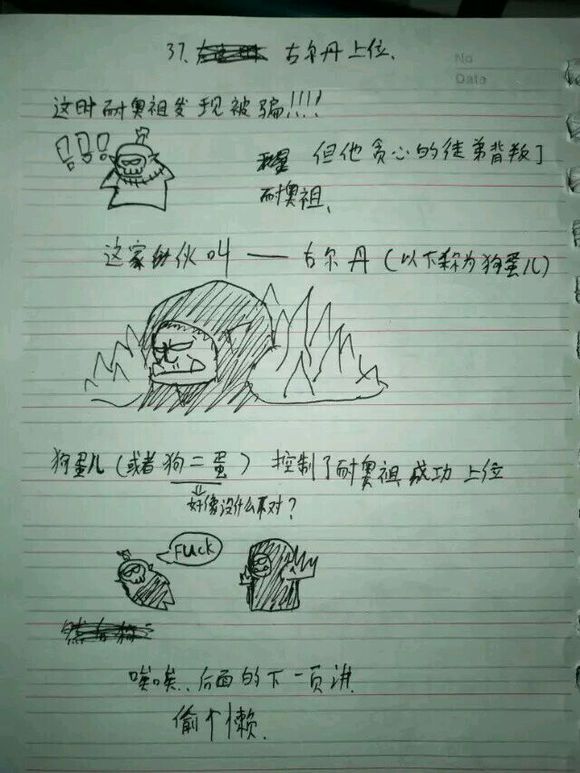 37. 古尔丹上位.
No
Date
这时耐奥祖发现被骗!!!!
!!!
但他贪心的徒弟背叛了
耐奥祖.
这家伙叫——古尔丹(以下称为狗蛋儿)
狗蛋儿(或者狗二蛋)控制了耐奥祖成功上位
好像没什么不对?
Fuck
唉唉..后面的下一页讲
偷个懒.